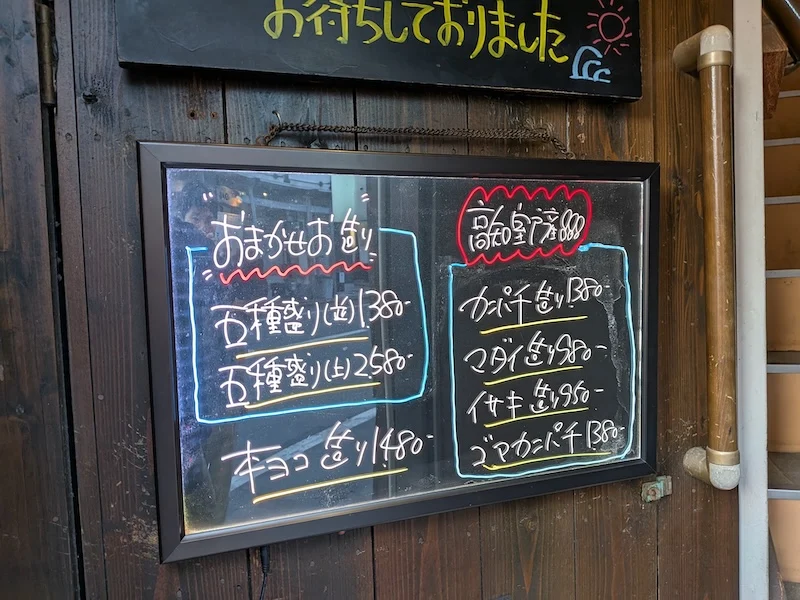 お待ちしておりました
"おまかせお造り"
五種盛り(並)1380-
五種盛り(上)2,580-
本ヨコ造り1480-
高知室戸産
カンパチ造り1380-
マダイ造り980-
イサキ造り980-
ゴマカンパチ1380-